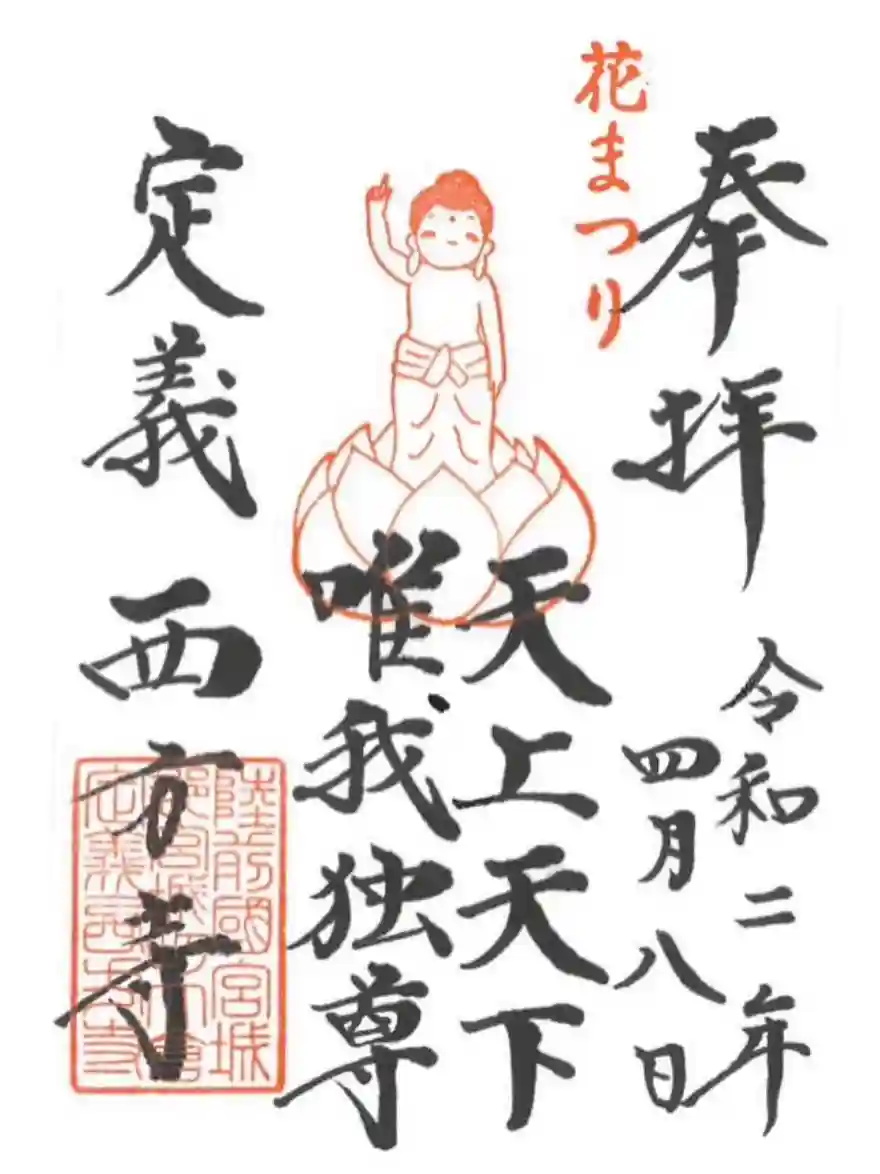 奉拝
花まつり
令和二年
四月八日
天上天下
唯我独尊
定義 西方寺
陸前國宮城
定義西方寺